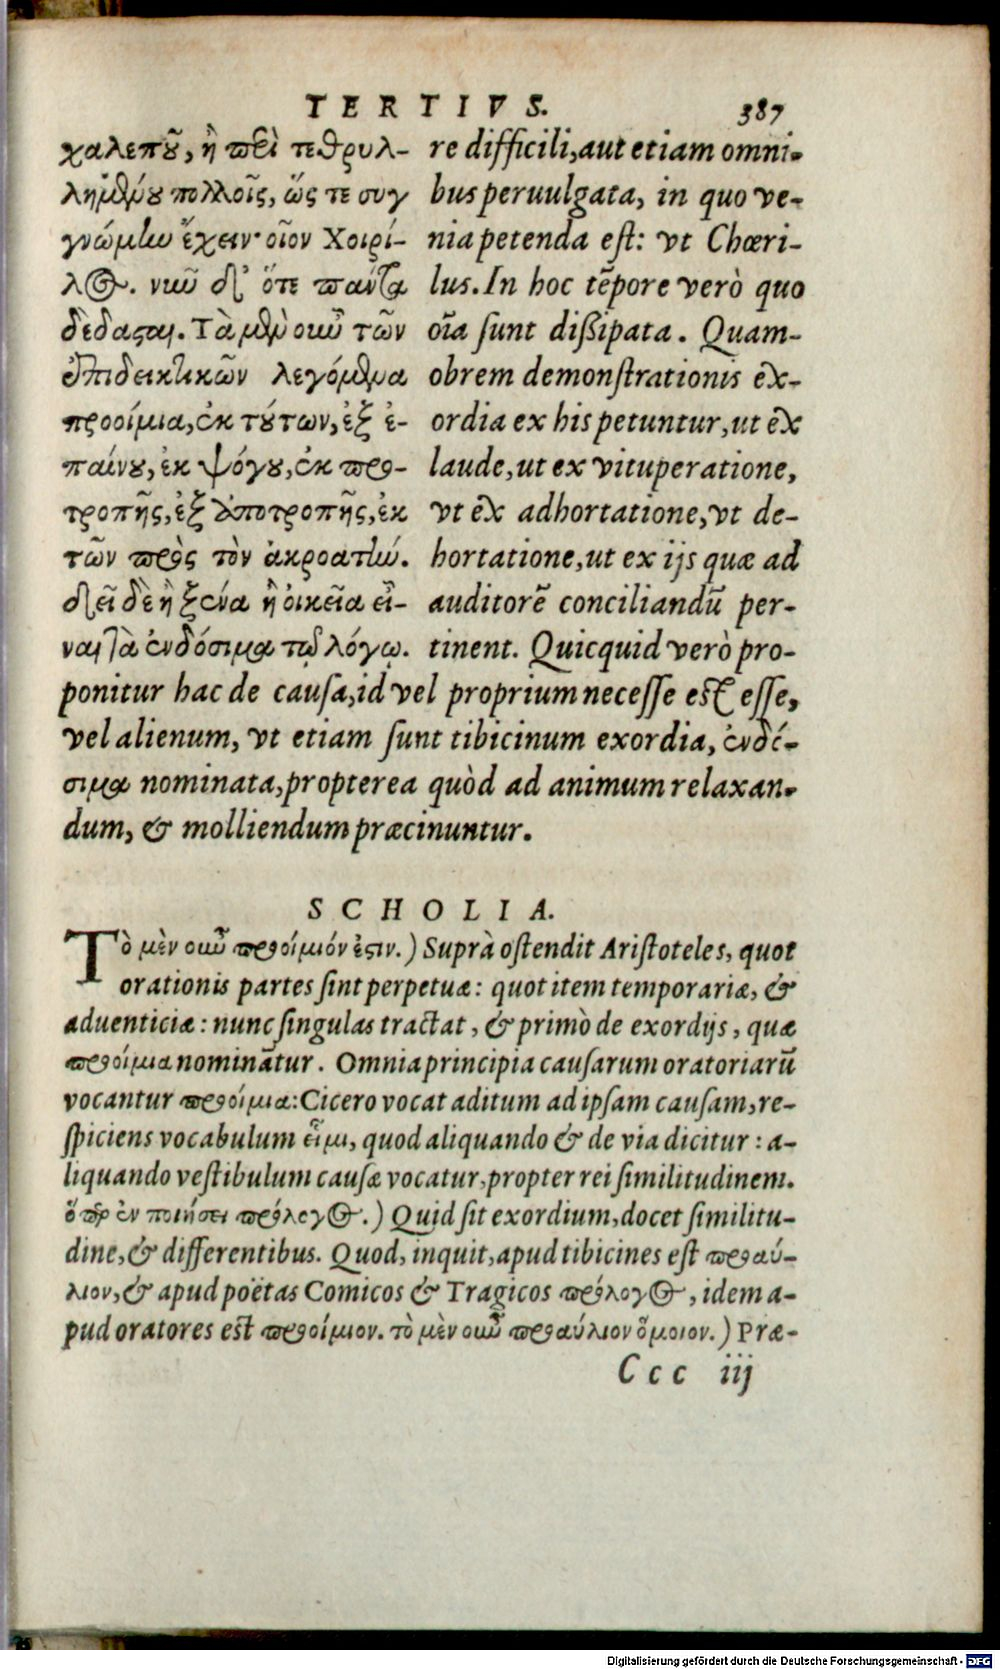 TERTIVS. 387
χαλεποῦ, ἢ περὶ τεθρυλ-
λημένου πολλοῖς, ὥς τε συγ
γνώμην ἔχειν· οἷον Χοιρί-
λος. νῦν δ' ὅτε πάντα
δέδασται. Τὰ μὲν οὖν τῶν
ἐπιδεικτικῶν λεγόμενα
προοίμια, ἐκ τούτων, ἐξ ἐ-
παίνου, ἐκ ψόγου, ἐκ προ-
τροπῆς, ἐξ ἀποτροπῆς, ἐκ
τῶν πρὸς τὸν ἀκροατήν.
δεῖ δὲ ἢ ξένα ἢ οἰκεῖα εἶ-
ναι τὰ ἐνδόσιμα τῷ λόγῳ.
re difficili, aut etiam omni-
bus peruulgata, in quo ve-
nia petenda est: vt Chœri-
lus. In hoc tēpore verò quo
oīa sunt dißipata. Quam-
obrem demonstrationis ex-
ordia ex his petuntur, ut ex
laude, ut ex vituperatione,
vt ex adhortatione, vt de-
hortatione, ut ex ijs quæ ad
auditorē conciliandū per-
tinent. Quicquid verò pro-
ponitur hac de causa, id vel proprium necesse est esse,
vel alienum, vt etiam sunt tibicinum exordia, ἐνδό-
σιμα nominata, propterea quòd ad animum relaxan-
dum, & molliendum præcinuntur.
SCHOLIA.
Τὸ μὲν οὖν προοίμιόν ἐστιν.) Suprà ostendit Aristoteles, quot
orationis partes sint perpetuæ: quot item temporariæ, &
aduenticiæ: nunc singulas tractat, & primò de exordijs, quæ
προοίμια nominātur. Omnia principia causarum oratoriarū
vocantur προοίμια: Cicero vocat aditum ad ipsam causam, re-
spiciens vocabulum εἶμι, quod aliquando & de via dicitur: a-
liquando vestibulum causæ vocatur, propter rei similitudinem.
ὅπερ ἐν ποιήσει πρόλογος.) Quid sit exordium, docet similitu-
dine, & differentibus. Quod, inquit, apud tibicines est προαύ-
λιον, & apud poëtas Comicos & Tragicos πρόλογος, idem a-
pud oratores est προοίμιον. τὸ μὲν οὖν προαύλιον ὅμοιον.) Præ-
Ccc iij
Digitalisierung gefördert durch die Deutsche Forschungsgemeinschaft - DFG